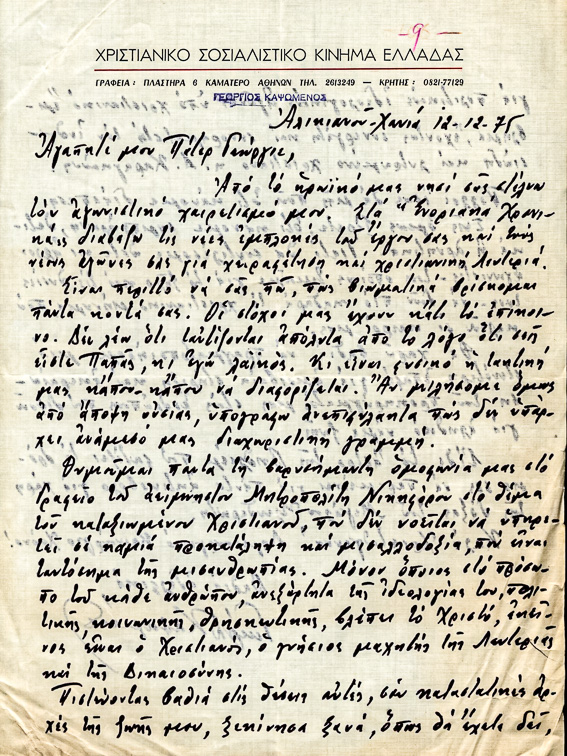 -9-
ΧΡΙΣΤΙΑΝΙΚΟ ΣΟΣΙΑΛΙΣΤΙΚΟ ΚΙΝΗΜΑ ΕΛΛΑΔΑΣ
ΓΡΑΦΕΙΑ: ΠΛΑΣΤΗΡΑ 6 ΚΑΜΑΤΕΡΟ ΑΘΗΝΩΝ ΤΗΛ. 2613249 — ΚΡΗΤΗΣ: 0821-77129
ΓΕΩΡΓΙΟΣ ΚΑΨΩΜΕΝΟΣ
Αλικιανού-Χανιά 12-12-75
Αγαπητέ μου Πάτερ Γεώργιε,
Από το ηρωϊκό μας νησί σάς στέλνω
τον αγωνιστικό χαιρετισμό μου. Στα "Ενοριακά Χρονι-
κά" διαβάζω τις νέες εμπλοκές του έργου σας και τους
νέους αγώνες σας γιά χειραφέτηση και χριστιανική Λευτεριά.
Είναι περιττό να σας πω, πως βιωματικά βρίσκομαι
πάντα κοντά σας. Οι στόχοι μας έχουν κάτι το επίκοι-
νο. Δεν λέω, ότι ταυτίζονται απόλυτα από το λόγο ότι σεις
είστε Παπάς, κι εγώ λαϊκός. Κι είναι φυσικό η τακτική
μας κάπου-κάπου να διαφορίζεται. Αν μιλήσομε όμως
από άποψη ουσίας, υπογράφω ανεπιφύλακτα πως δεν υπάρ-
χει ανάμεσό μας διαχωριστική γραμμή.
Θυμούμαι πάντα τη βαρυσήμαντη ομοφωνία μας στο
Γραφείο του αειμνήστου Μητροπολίτη Νικηφόρου στο θέμα
του καταξιωμένου Χριστιανού, που δεν νοείται να υπηρε-
τεί σε καμιά προκατάληψη και μισαλλοδοξία, που είναι
ταυτόσημα της μισανθρωπίας. Μόνον όποιος στο πρόσω-
πο του κάθε ανθρώπου, ανεξάρτητα της ιδεολογίας του, πολι-
τικής κοινωνικής, θρησκευτικής, βλέπει το Χριστό, εκεί-
νος είναι ο Χριστιανός, ο γνήσιος μαχητής της Λευτεριάς
και της Δικαιοσύνης.
Πιστεύοντας βαθιά στις θέσεις αυτές, σαν καταστατικές αρ-
χές της ζωής μου, ξεκίνησα ξανά, όπως θα έχετε δει,